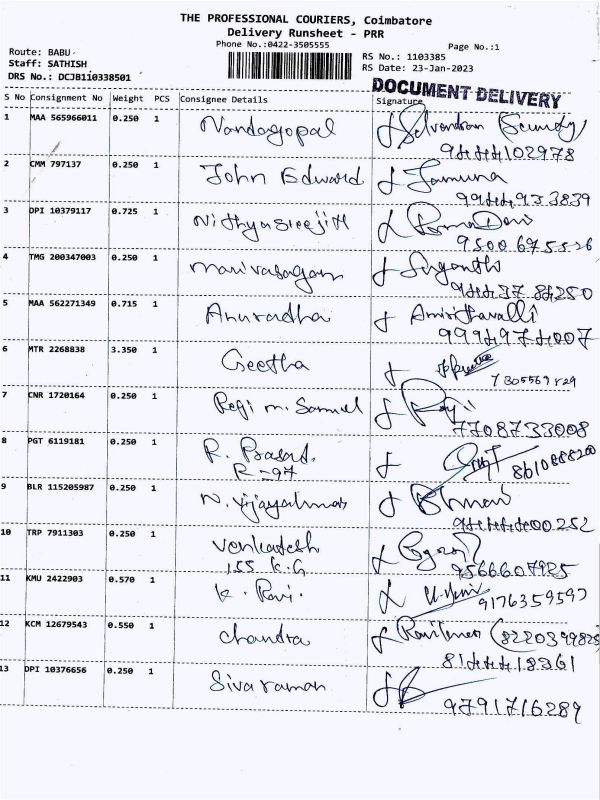 THE PROFESSIONAL COURIERS, Coimbatore
Delivery Runsheet - PRR
Phone No.:0422-3505555
Page No.:1
Route: BABU
Staff: SATHISH
DRS No.: DCJB110338501
RS No.: 1103385
RS Date: 23-Jan-2023
DOCUMENT DELIVERY
S No Consignment No Weight PCS Consignee Details Signature
1 MAA 565966011 0.250 1 Nandagopal
9444102978
2 CMM 797137 0.250 1 John Edward Jamuna
9944933839
3 DPI 10379117 0.725 1 Nithyasreejith Rama Devi
4 TMG 200347003 0.250 1 manivasagam Suganthi
9443784250
5 MAA 562271349 0.715 1 Anuradha Amirthavalli
9994974007
6 MTR 2268838 3.350 1 Geetha
7305569829
7 CNR 1720164 0.250 1 Regi m. Samuel
7708733008
8 PGT 6119181 0.250 1 R. Prasad.
R-97
8610888200
9 BLR 115205987 0.250 1
9444400252
10 TRP 7911303 0.250 1 Venkatesh
155 K.G
9566607925
11 KMU 2422903 0.570 1 K. Ravi.
9176359597
12 KCM 12679543 0.550 1 Chandra
8144418361
13 DPI 10376656 0.250 1 Sivaraman
9791716289